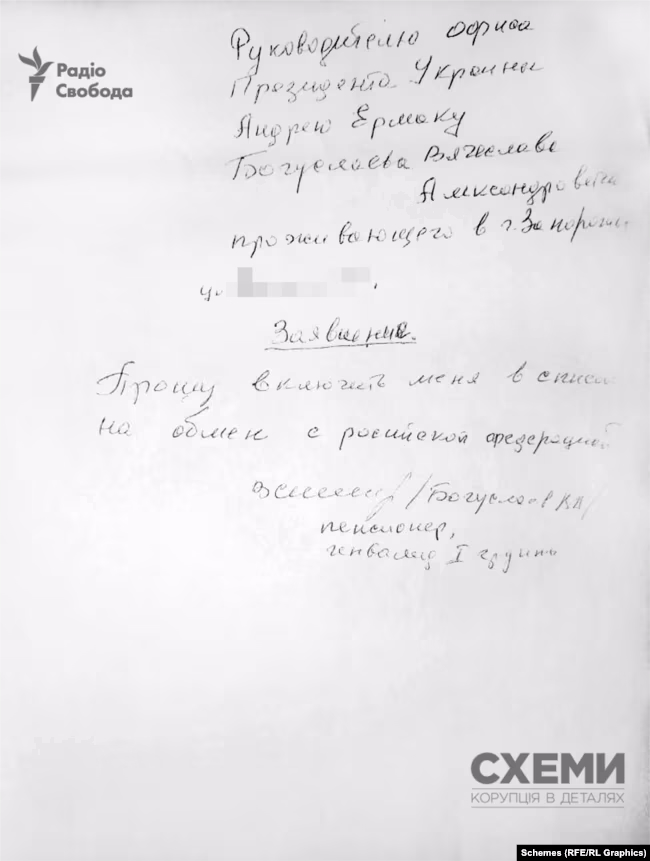 Радіо
Свобода
Руководителю офиса
Президента Украины
Андрею Ермаку
Богуслаева Вячеслава
Александровича
проживающего в г. Запорожье
Заявление.
Прошу включить меня в список
на обмен с российской федерацией
/Богуслаев ВА/
пенсионер,
инвалид I группы
СХЕМИ
КОРУПЦІЯ В ДЕТАЛЯХ
Schemes (RFE/RL Graphics)